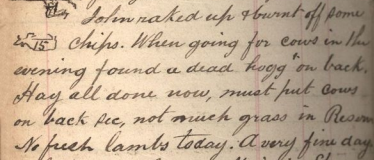 John raked up & burnt off some
15 chips. When going for cows in the
evening found a dead hogg "on back.
Hay all done now, must put cows
on back sec, not much grass in Reserv
No fresh lambs today. A very fine day